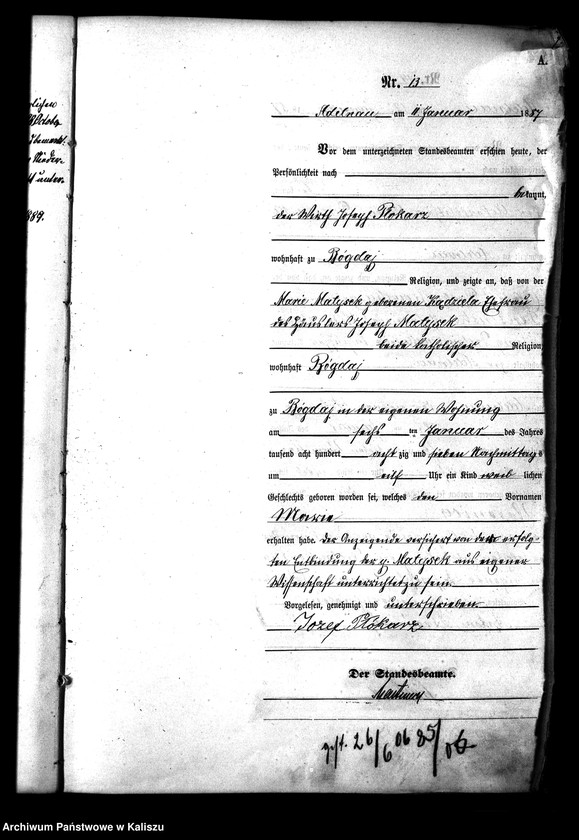 rlichen
8 October
Nieder-
unter-
889.
A.
Nr. 13
Adelnau am 11 Januar 1887
Vor dem unterzeichneten Standesbeamten erschien heute, der
Persönlichkeit nach
bekannt,
der Wirth Joseph Plokarz
wohnhaft zu Bógdaj
Religion, und zeigte an, daß von der
Marie Malysek geborenen Kaduela Ehefrau
des Häuslers Joseph Malysek
beide katholischer Religion,
wohnhaft Bógdaj
zu Bógdaj in der eigenen Wohnung
am sechs ten Januar des Jahres
tausend acht hundert acht zig und sieben Nachmittags
um eilf Uhr ein Kind weib lichen
Geschlechts geboren worden sei, welches den Vornamen
Marie
erhalten habe. Der Anzeigende versichert von der erfolg-
ten Entbindung der g. Malysek aus eigener
Wissenschaft unterrichtet zu sein.
Vorgelesen, genehmigt und unterschrieben.
Jozef Plokarz
Der Standesbeamte.
gest. 26/6 06 85/06
Archiwum Państwowe w Kaliszu